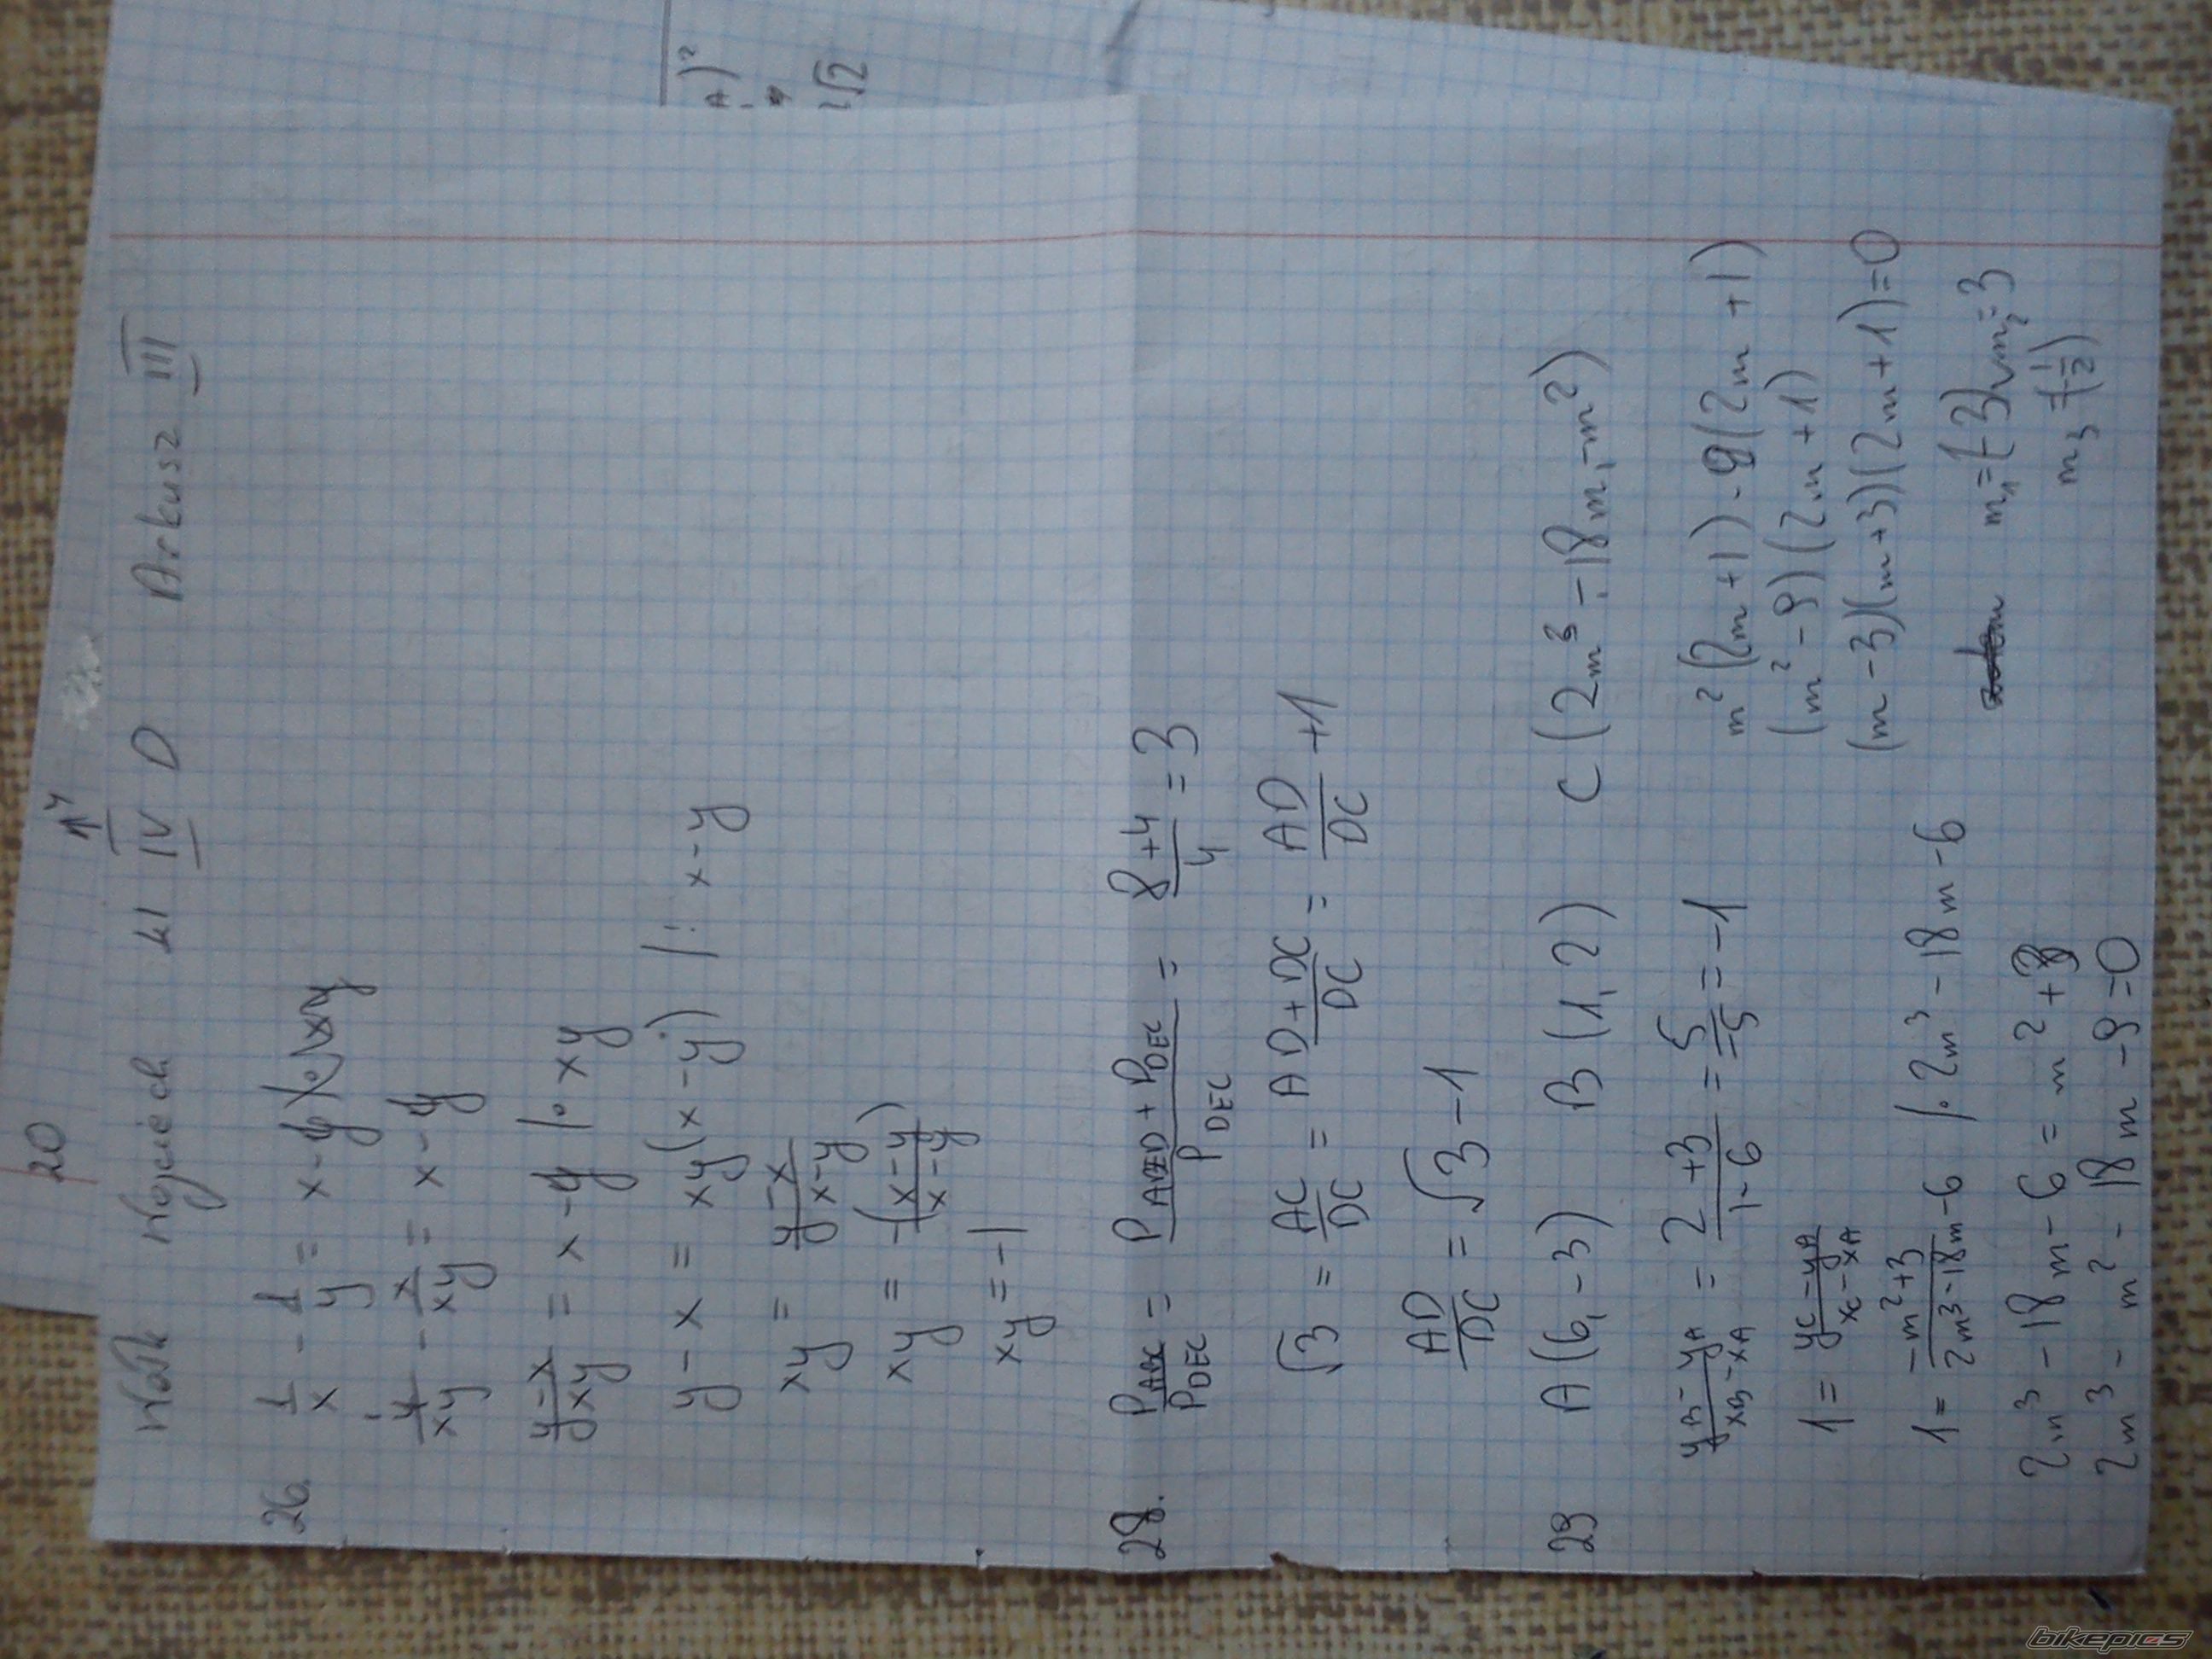 20
Wojciech kl IV D Arkusz III
26. 1/x - 1/y = x-y
y/xy - x/xy = x-y
y-x/xy = x-y /· xy
y-x = xy(x-y) /: x-y
xy = y-x/x-y
xy = -(x-y/x-y)
xy = -1
28. P_ABC/P_DEC = P_ABED + P_DEC/P_DEC = 8+4/4 = 3
√3 = AC/DC = AD+DC/DC = AD/DC +1
AD/DC = √3 -1
29 A(6,-3) B(1,2) C(2m³-18m,-m²)
yB-yA/xB-xA = 2+3/1-6 = 5/-5 = -1
1 = yC-yA/xC-xA
1 = -m²+3/2m³-18m-6 /· 2m³-18m-6
2m³-18m-6 = m²+3
2m³-m²-18m-9=0
m²(2m+1)-9(2m+1)
(m²-9)(2m+1)
(m-3)(m+3)(2m+1)=0
m₁=(-3) v m₂=3
m₃=(-1/2)
A)²
√2
bikepics